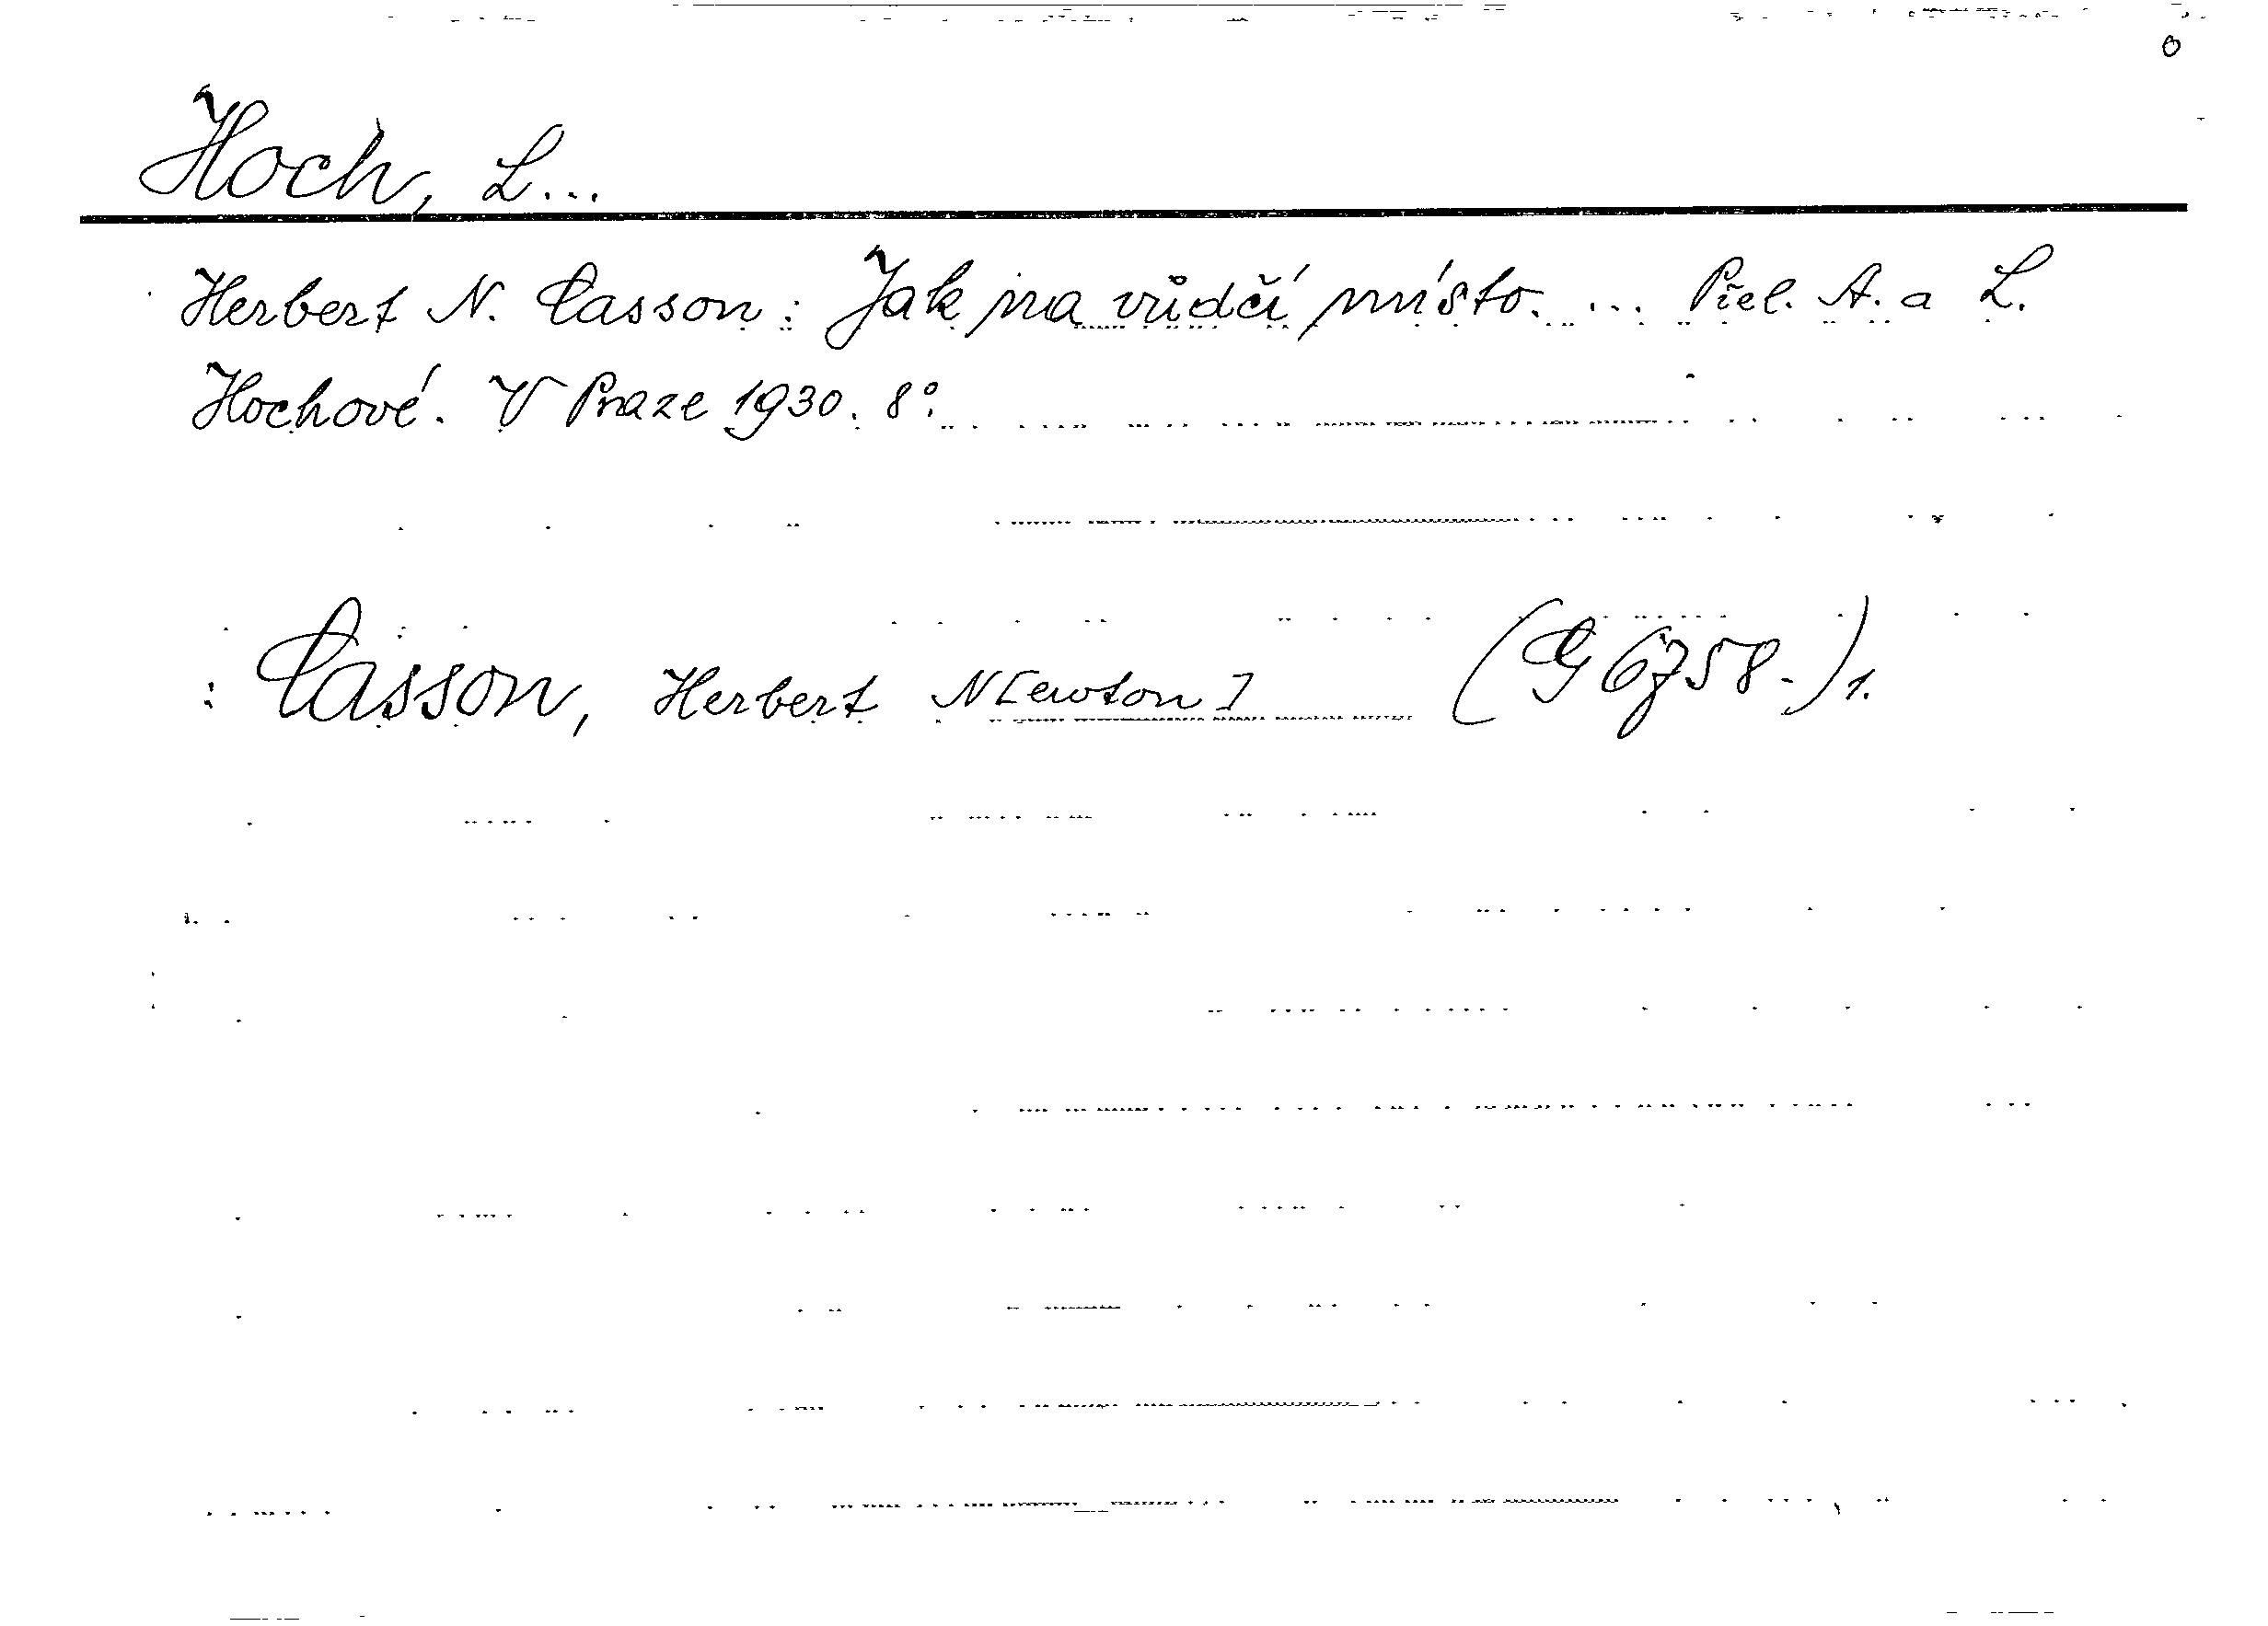 Hoch, L...
Herbert N. Casson: Jak na vůdčí místo. ... Přel. A. a L.
Hochové. V Praze 1930. 8°.
: Casson, Herbert N[ewton] (G 6758-)1.